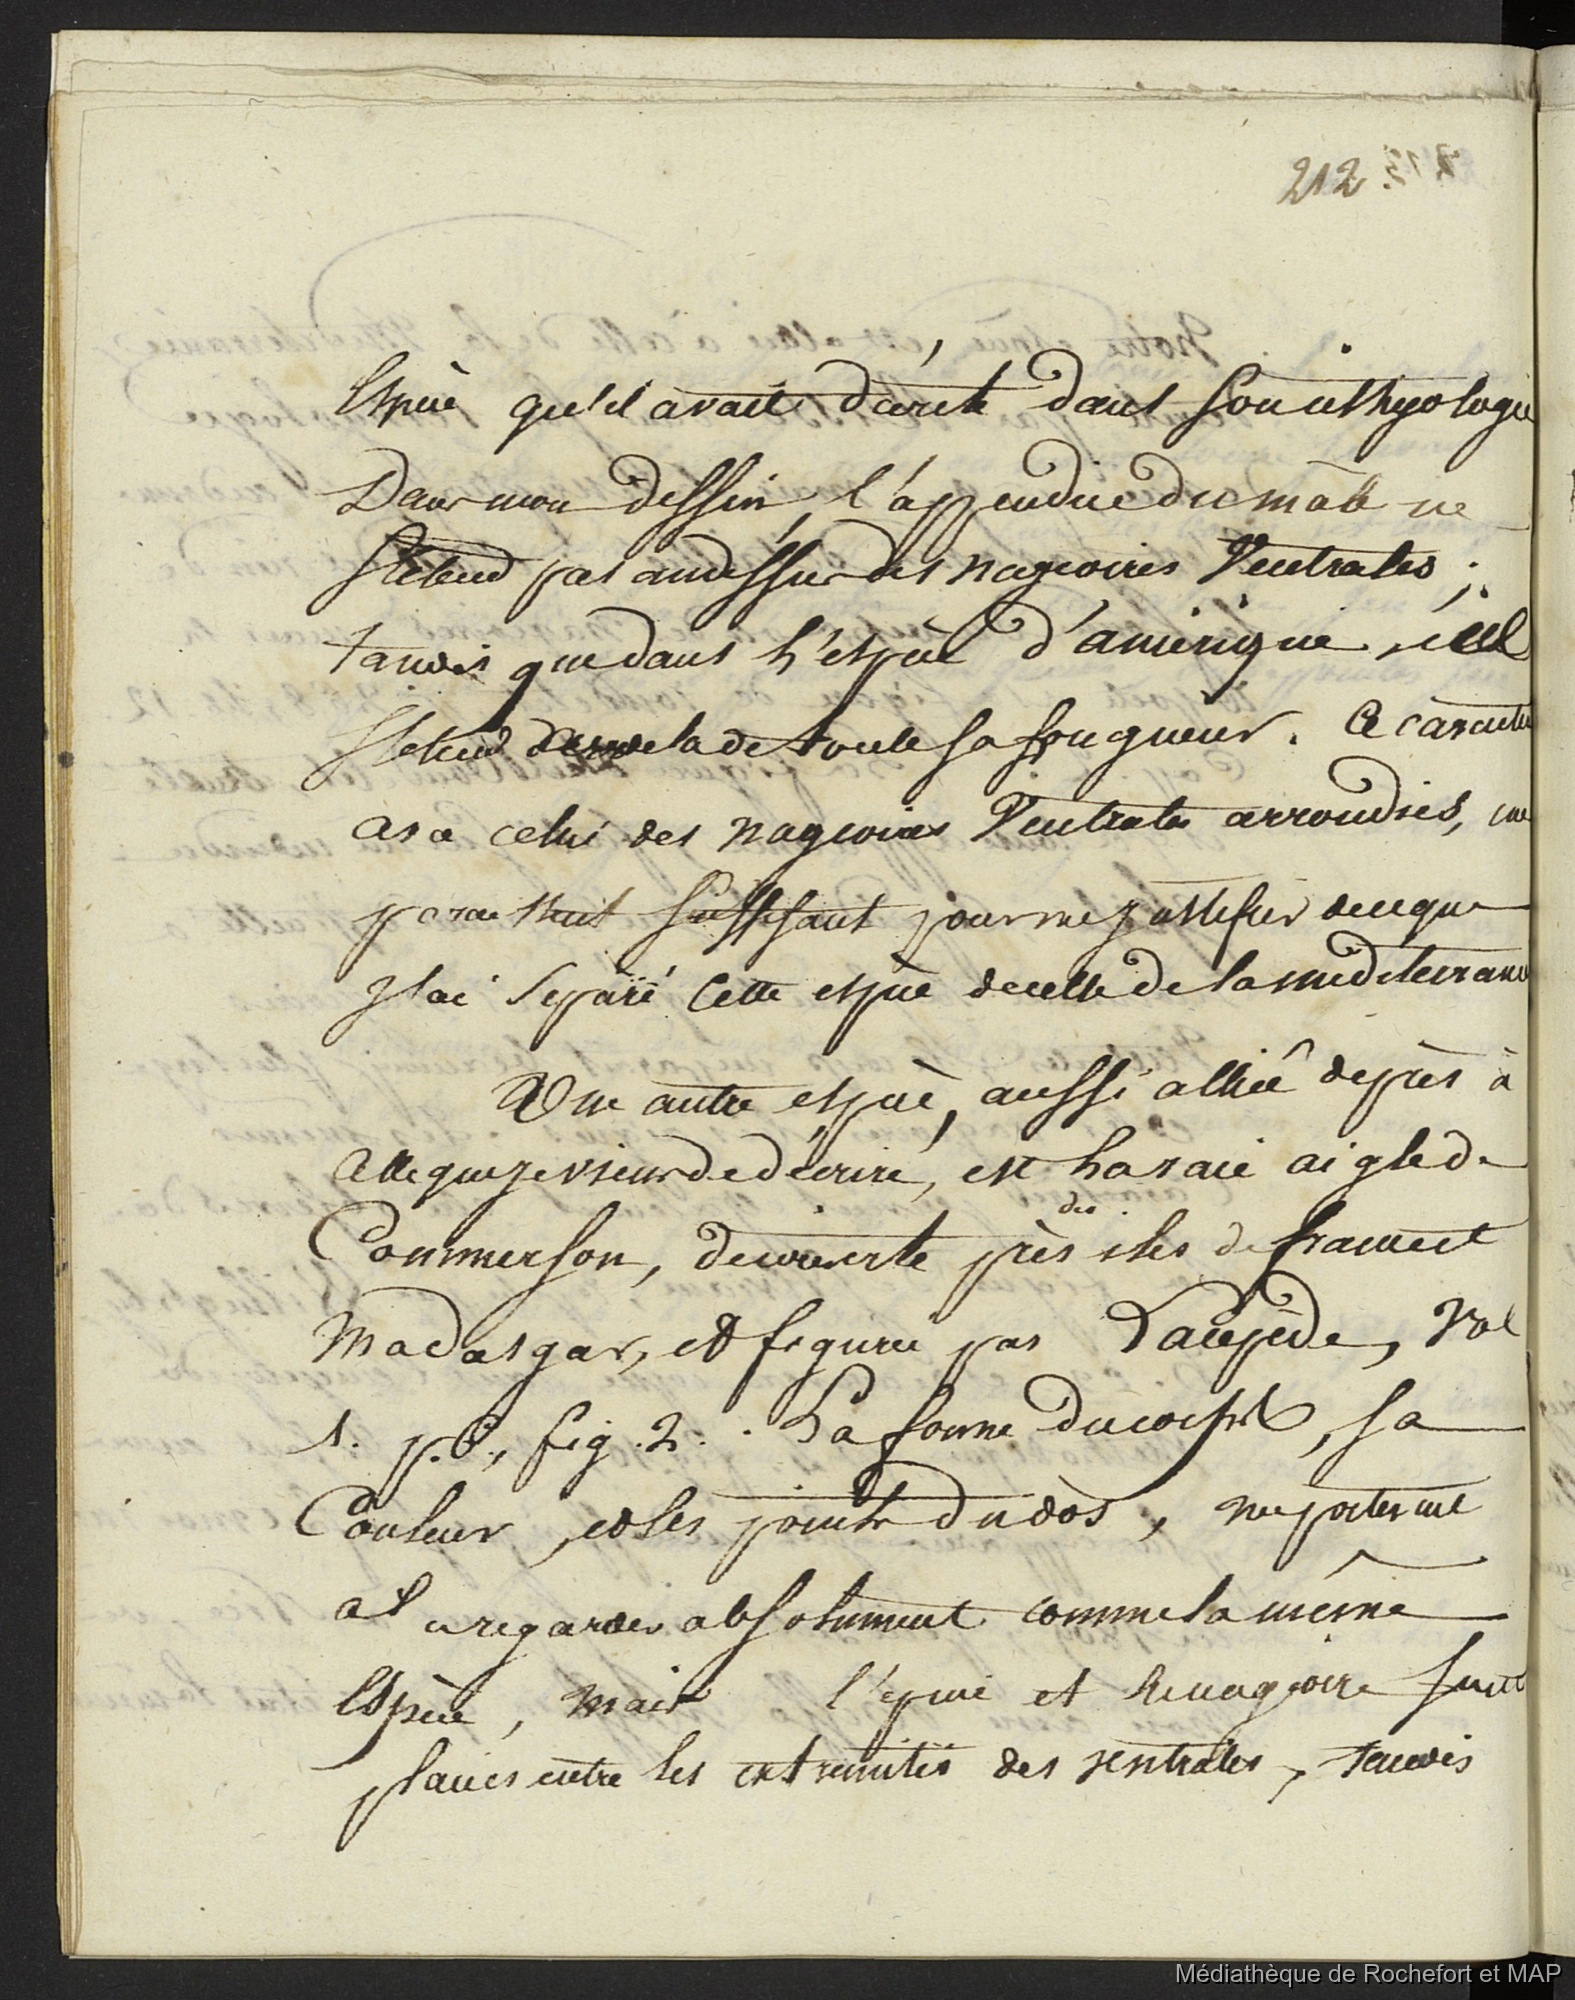 212
Espèce qu'il avait décrite dans son icthyologie
Dans mon dessin, l'appendice du mâle ne
s'etend pas audessus des nageoires Ventrales ;
tandis que dans l'espèce d'amérique, il
s'etend dela de toute sa longueur. Ce caractere
as a celui des nageoires Ventrales arrondies, me
paraissent suffisant pour me justifier de ce que
j'ai separé cette espèce de celle de la mediterranée
Une autre espèce, aussi alliée de près à
celle que je viens de décrire, est la raie aigle de
Commerson, decouverte près des iles de france et
Madasgar, et figuré par Lacépède, Vol
1. p. 6, fig. 2. . La forme du corps, sa
Couleur, et les points du dos, me portent
a regarder absolument comme la même
Espèce, mais l'epine et la nageoire sont
placés entre les extremités des ventrales, tandis
Médiathèque de Rochefort et MAP